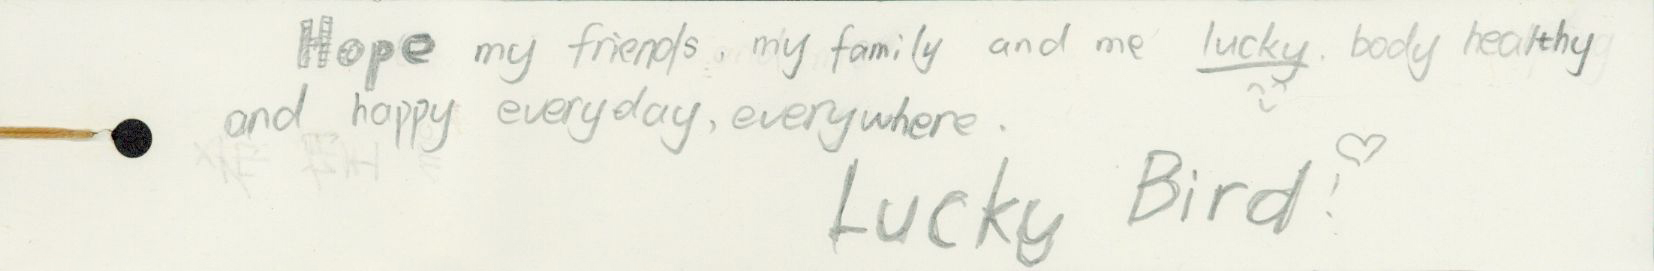 Hope my friends. my family and me lucky. body healthy
and happy everyday, everywhere.
Lucky Bird! ♡